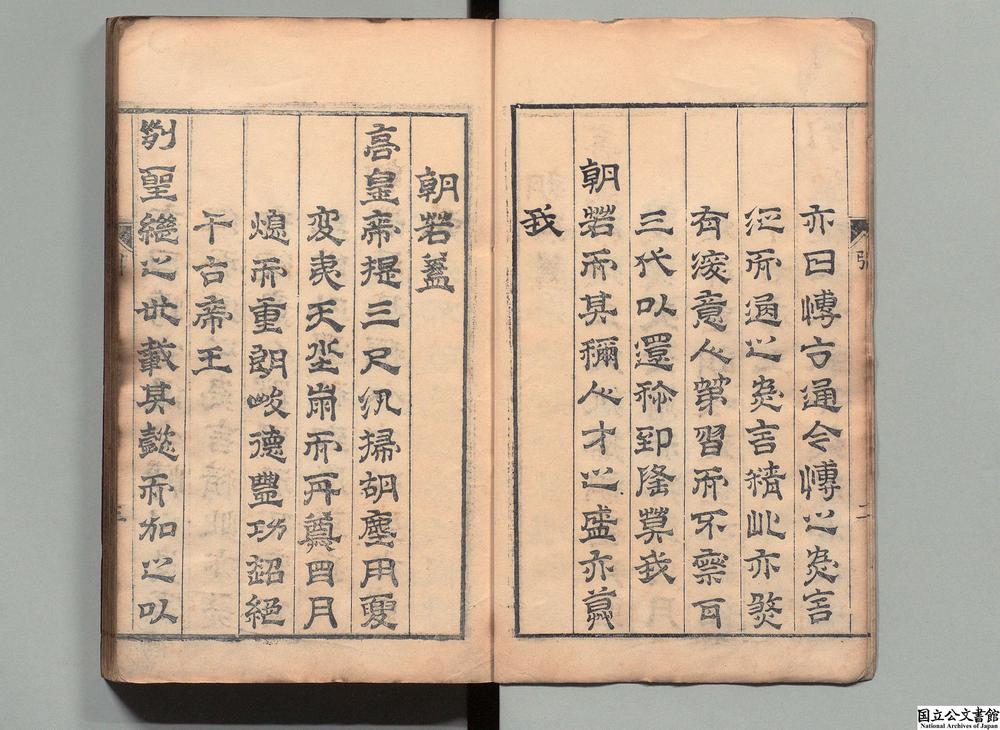 亦曰愽古通今愽之為言
泛而通之為言精此亦煞
有深意人第習而不察耳
三代以還称郅隆莫我
朝若而其稱人才之盛亦莫
我
引
二
朝若蓋
高皇帝提三尺汛掃胡塵用夏
変夷天埊崩而再奠日月
熄而重朗峻德豐功超絕
千古帝王
列聖繼之世載其懿而加之以
三
国立公文書館
National Archives of Japan